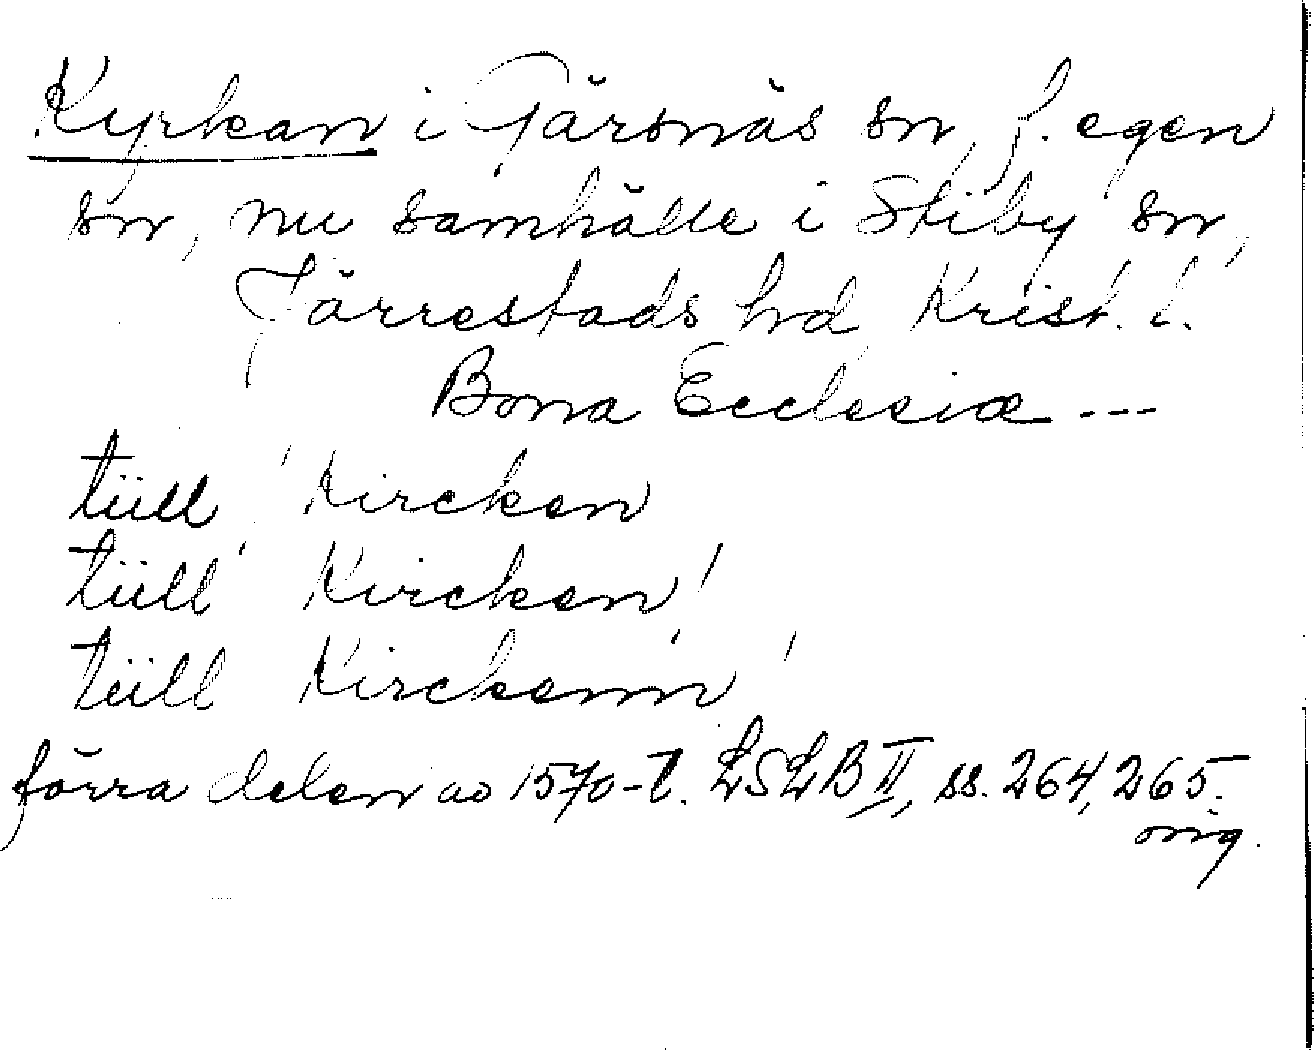 Kyrkan i Gärsnäs sn, f. egen
sn, nu samhälle i Stiby sn,
Järrestads hd Krist. l.
Bona Ecclesiæ ---
tüll Kircken
tüll Kircken
tüll Kirckenn
förra delen av 1570-t. LSLB II, ss. 264, 265.
orig.